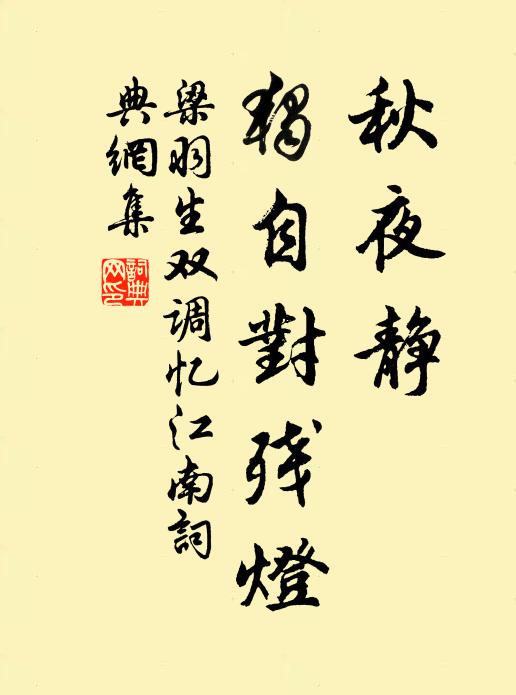 秋夜静
獨自對残燈
梁羽生双调忆江南詞
典網集
詞典
网印